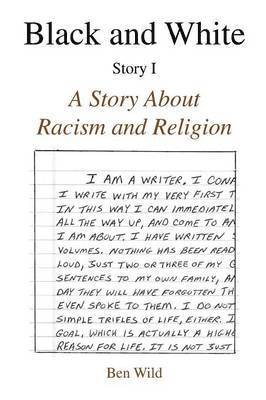 Black and White
Story I
A Story About
Racism and Religion
I AM A WRITER. I
I WRITE WITH MY VERY FIRST
IN THIS WAY I CAN
ALL THE WAY UP, AND COME TO
I AM ABOUT. I HAVE WRITTEN
VOLUMES. NOTHING HAS BEEN READ
LOUD, JUST TWO OR THREE OF MY
SENTENCES TO MY OWN FAMILY,
DAY THEY WILL HAVE FORGOTTEN
EVEN SPOKE TO THEM. I DO NOT
SIMPLE TRIFLES OF LIFE, EITHER.
GOAL, WHICH IS ACTUALLY A
REASON FOR LIFE. IT IS NOT JUST
Ben Wild